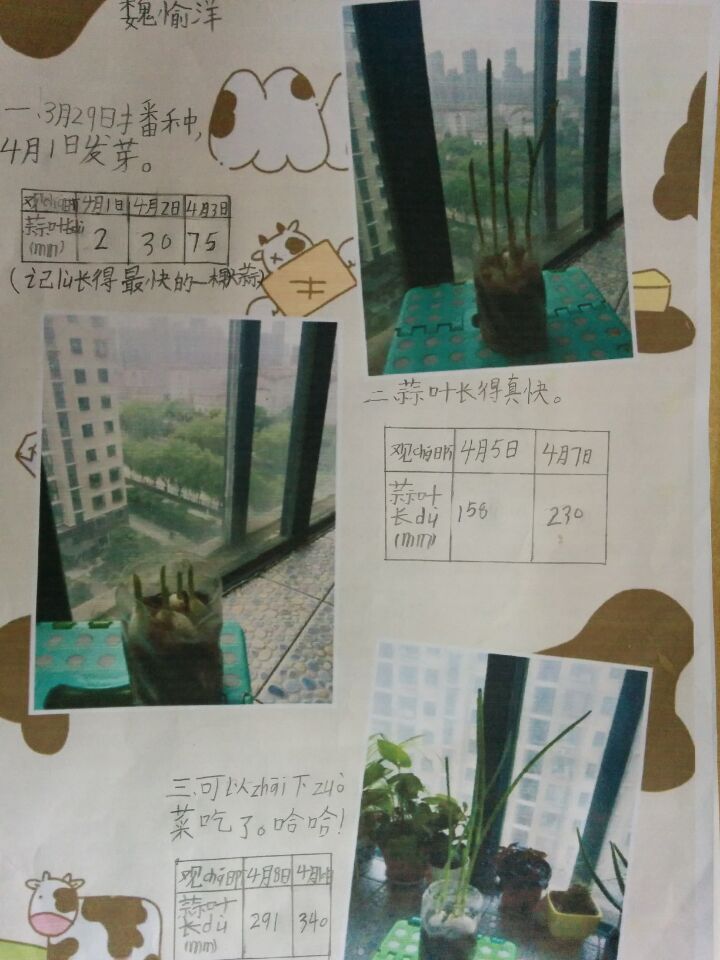 魏愉洋
一、3月29日播种,
4月1日发芽。
观chá日期 4月1日 4月2日 4月3日
蒜叶长dù
(mm) 2 30 75
(记lù长得最快的一棵蒜)
二、蒜叶长得真快。
观chá日期 4月5日 4月7日
蒜叶
长dù
(mm) 158 230
三、可以zhāi下zuò
菜吃了。哈哈!
观chá日期 4月8日
蒜叶
长dù
(mm) 291 340